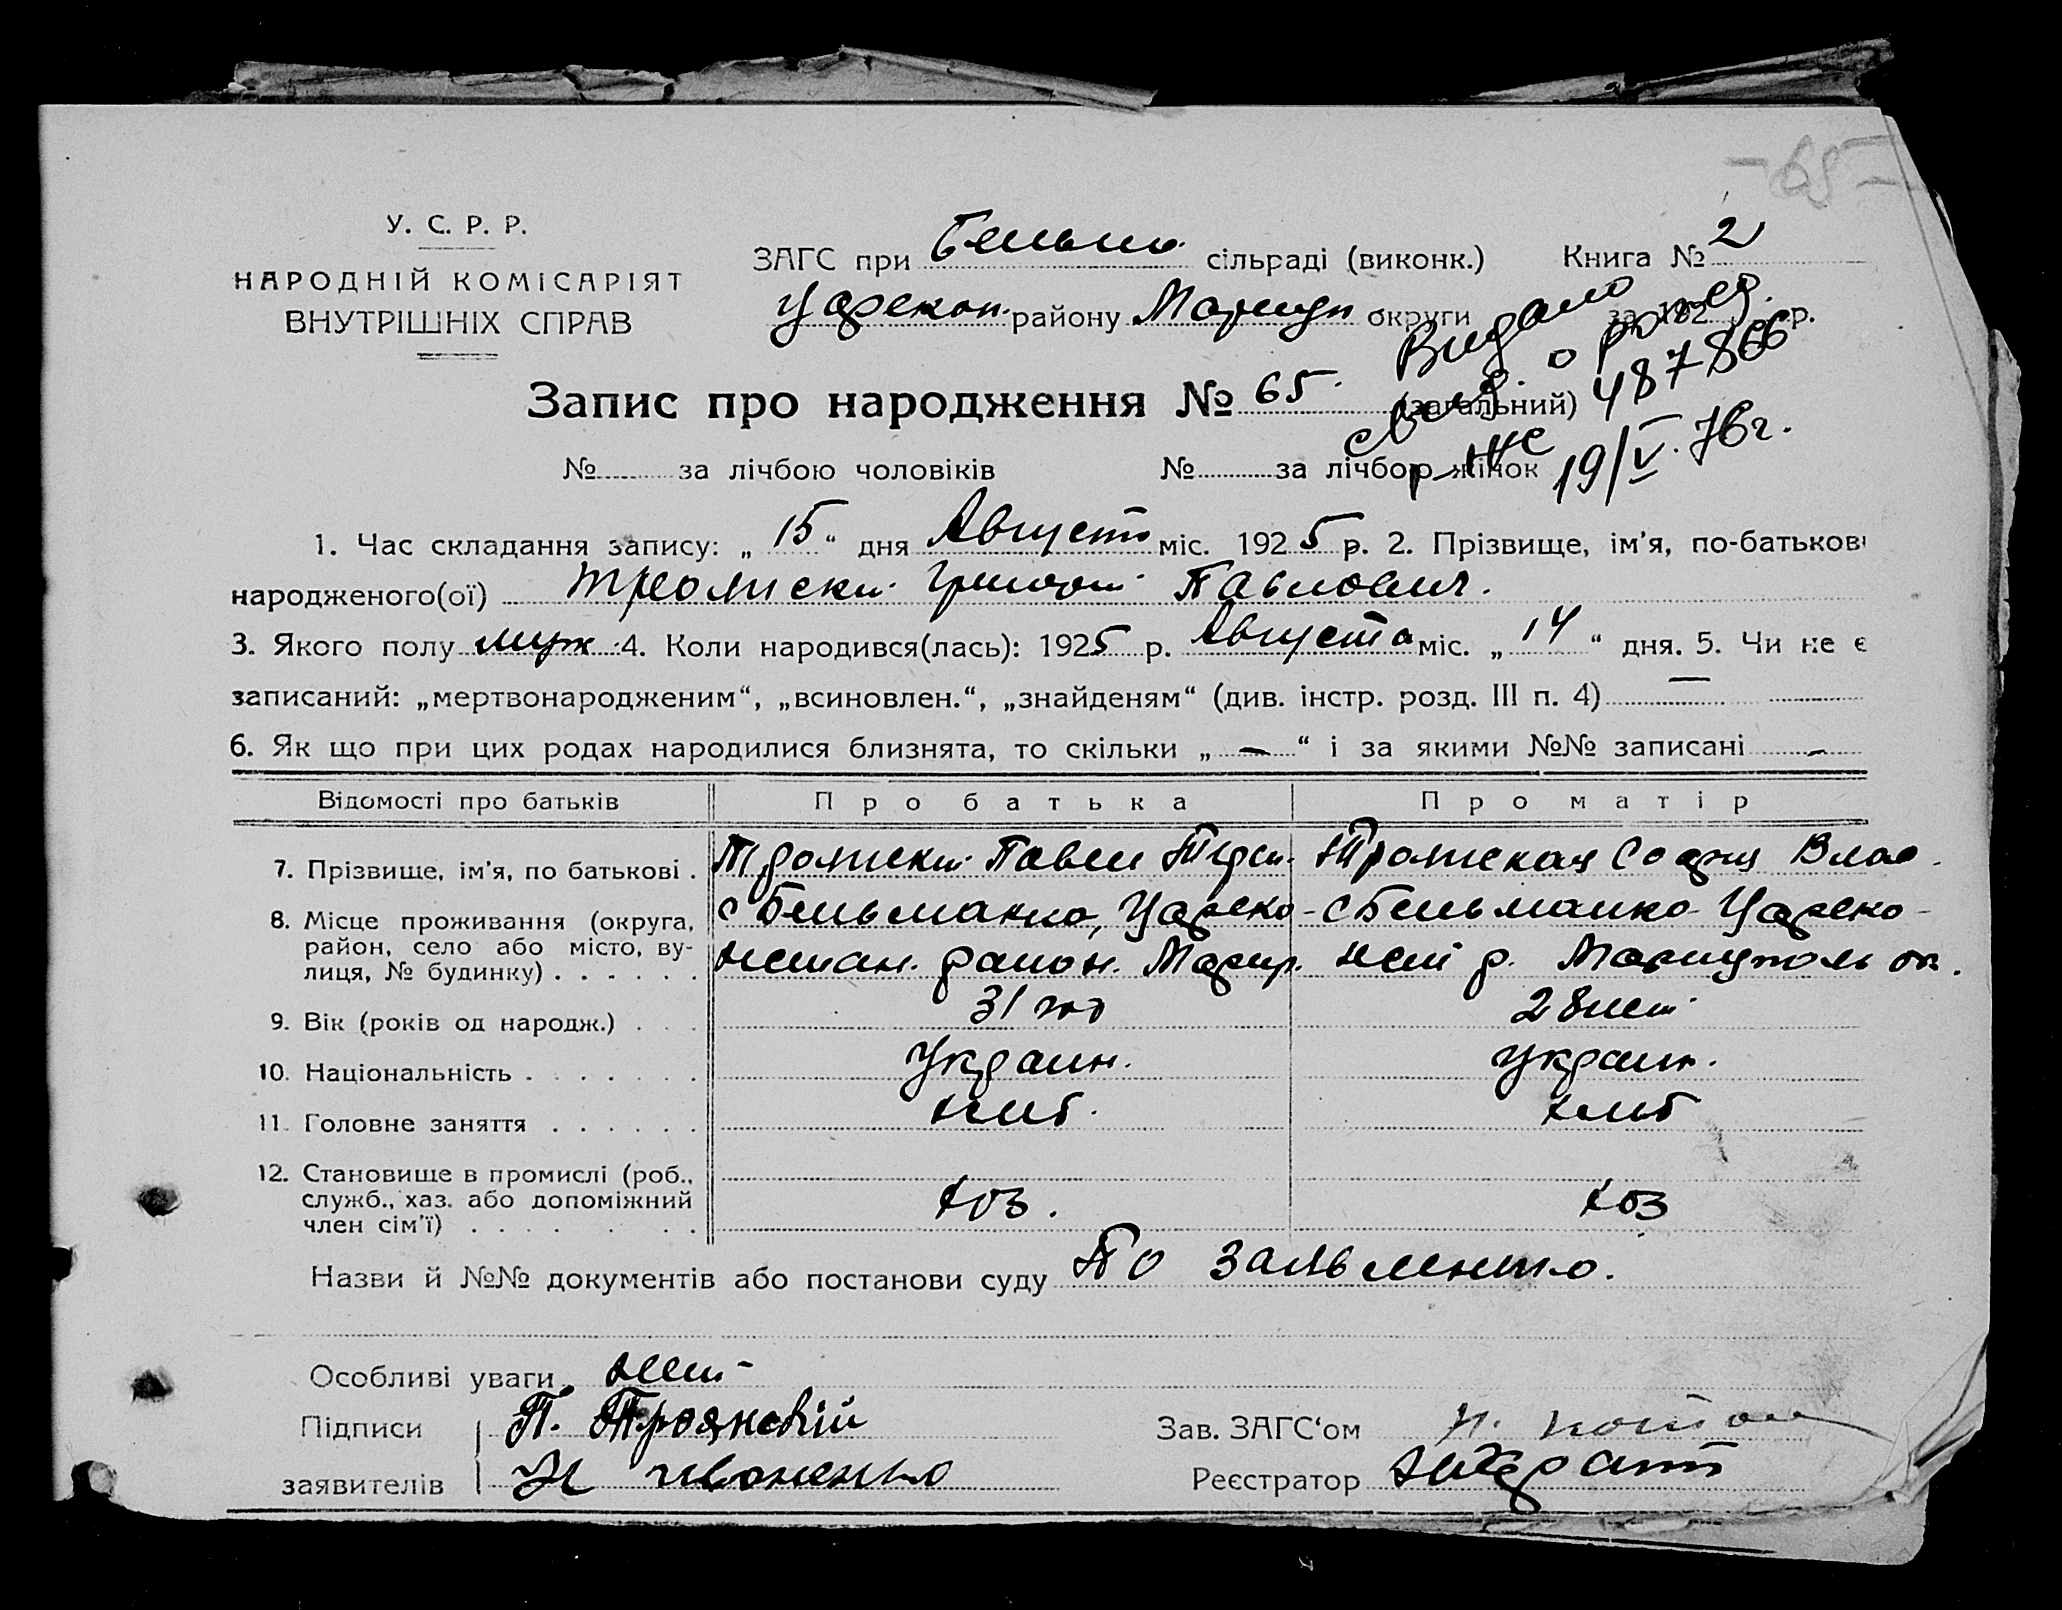 -65-
У. С. Р. Р.
НАРОДНІЙ КОМІСАРІЯТ
ВНУТРІШНІХ СПРАВ
ЗАГС при Бельма. сільраді (виконк.) Книга № 2
Царекон. району Мариуп округи за 192 р.
Видано
свид. о рожд.
487866
19/V. 76 г.
Запис про народження № 65. (загальний)
№ за лічбою чоловіків № за лічбою жінок
1. Час складання запису: „ 15 “ дня Августа міс. 1925 р. 2. Прізвище, ім'я, по-батькові
народженого(ої) Григори Павлович.
3. Якого полу муж 4. Коли народився(лась): 1925 р. Августа міс. „ 14 “ дня. 5. Чи не є
записаний: „мертвонародженим“, „всиновлен.“, „знайденям“ (див. інстр. розд. III п. 4) —
6. Як що при цих родах народилися близнята, то скільки „ — “ і за якими №№ записані -
Відомості про батьків Про батька Про матір
7. Прізвище, ім'я, по батькові . Павел София Влас.
8. Місце проживання (округа,
район, село або місто, ву-
лиця, № будинку) . . . . . .
с Бельманко, Цареко-
нстан. район. Мариуп.
с Бельманко Цареко-
нст р. Мариуполь ок.
9. Вік (років од народж.) . . . 31 год 28 лет
10. Національність . . . . . . . Украин. Украин.
11. Головне заняття . . . . . . хлеб. хлеб
12. Становище в промислі (роб.,
служб., хаз. або допоміжний
член сім'ї) . . . . . . . .
хоз. хоз
Назви й №№ документів або постанови суду По заявлению.
Особливі уваги нет -
Підписи П. Трояновскій Зав. ЗАГС‘ом
заявителів Ивоненко Реєстратор